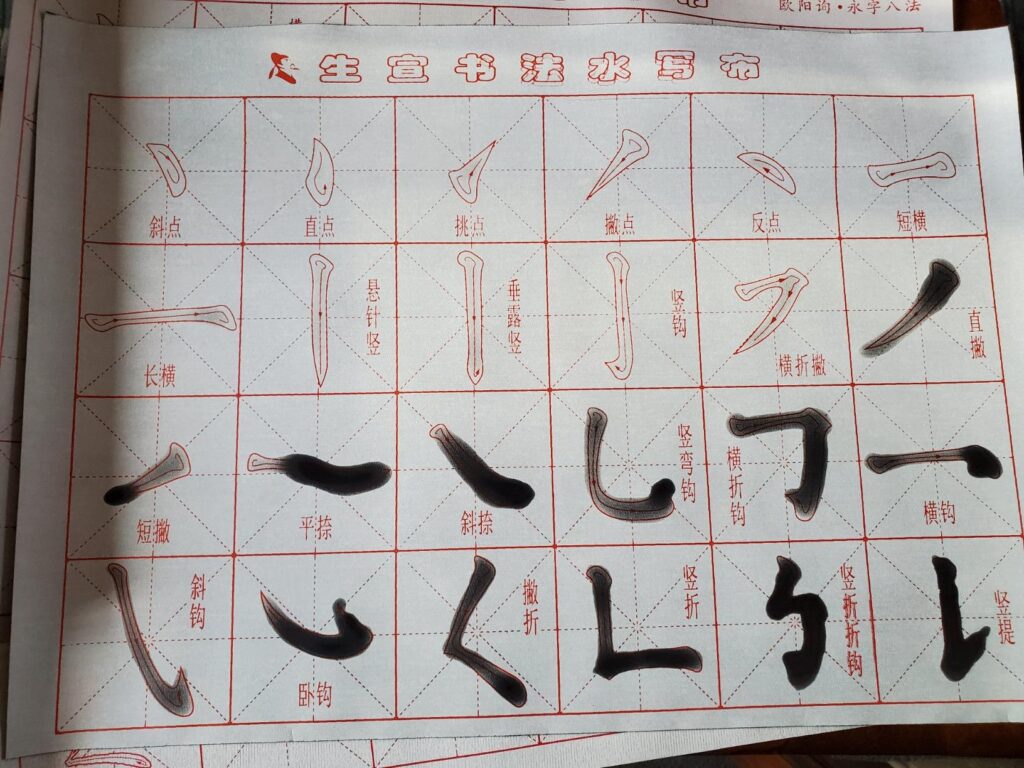 欧阳询·永字八法
生宣书法水写布
斜点
直点
挑点
撇点
反点
短横
长横
悬针竖
垂露竖
竖钩
横折撇
直撇
短撇
平捺
斜捺
竖弯钩
横折钩
横钩
斜钩
卧钩
撇折
竖折
竖折折钩
竖提